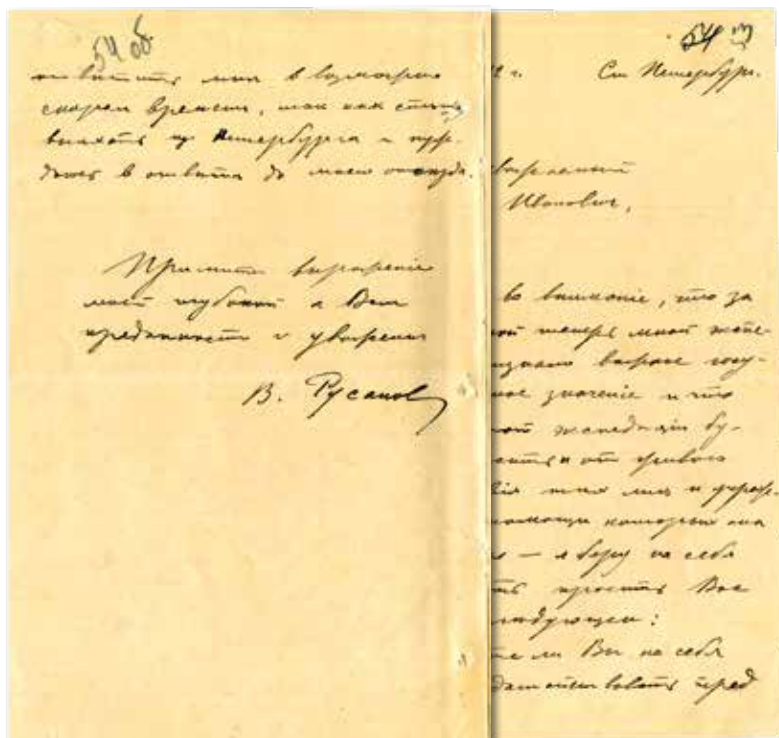 54 об.
ответить мне в возможно
скором времени, так как спешу
выехать из Петербурга и нуж-
даюсь в ответе до моего отъезда.
Примите выраженіе
моей глубокой к Вам
преданности и уваженія
В. Русанов
54
2 г. Ст Петербург.
уважаемый
Иванович,
во вниманіе, что за
ной теперь мной экспе-
изнано важное госу-
ное значеніе и что
ной экспедиціи бу-
от живого
вія тех лиц и учреж-
помощи которых она
я — я беру на себя
ть просить Вас
следующем:
те ли Вы на себя
датайствовать пред